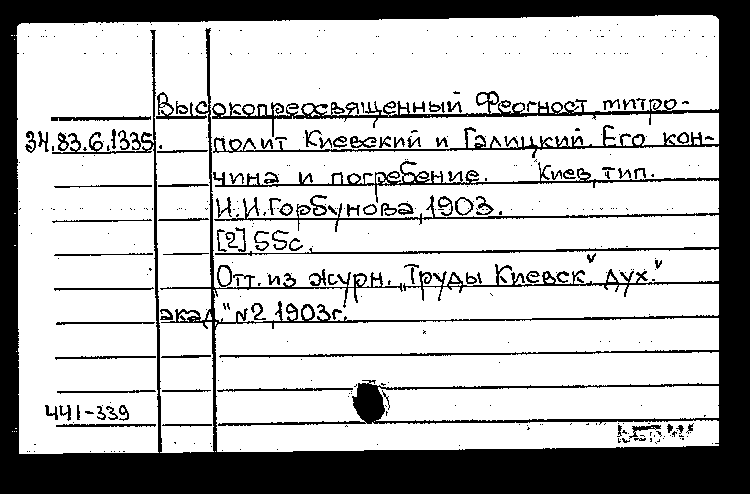 Высокопреосвященный Феогност, митро-
34.83.6.1335. полит Киевский и Галицкий. Его кон-
чина и погребение. Киев, тип.
И.И.Горбунова, 1903.
[2], 55с.
Отт. из журн. „Труды Киевск. дух."
акад." №2, 1903г.
441-339